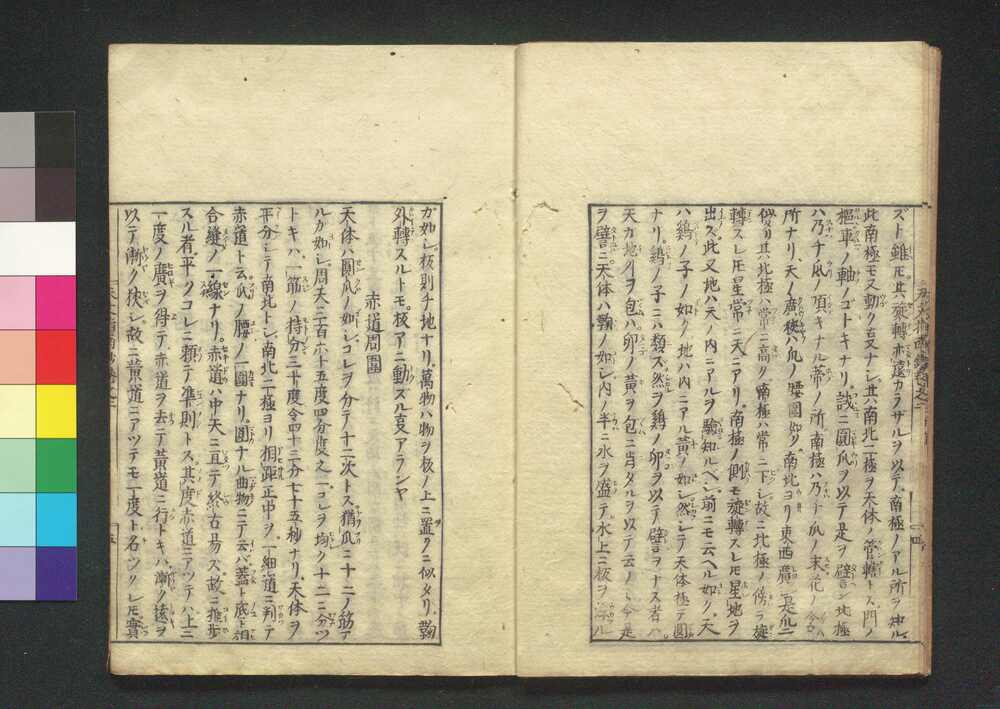 ズト雖𪜈其旋轉亦遠カラザルヲ以テ南極ノアル所ヲ知ル
此南極モ又動ク㕝ナシ其ハ南北二極ヲ天体ノ管轄トス門ノ
樞車ノ軸ノゴトキナリ誠ニ圓瓜ヲ以テ是ヲ譬ン北極
ハ乃チ瓜ノ頂キナル蒂ノ所南極ハ乃チ瓜ノ末花ノ
所ナリ天ノ廣狹ハ瓜ノ腰圍如リ南北ヨリ東西廣長𪜈
傾リ其北極ハ常ニ高ク南極ハ常ニ下シ故ニ北極ノ傍ヲ旋
轉スレ𪜈星常ニ天ニアリ南極ノ側モ旋轉スレ𪜈星地ヲ
出ズ此又地ハ天ノ内ニアルヲ驗知ルベシ前ニモ云ヘル如ク天
ハ鷄ノ子ノ如ク地ハ内ニアル黄ノ如シ然シテ天体極テ圓
ナリ鷄ノ子ニハ類ス然ラ鷄ノ卵ヲ以テ譬ヲナス者ハ
天カ地外ヲ包ハ卵ノ黄ヲ包ニ当タルヲ以テ云ノミ今是
ヲ譬ニ天体ハ鞠ノ如シ内ノ半ニ水ヲ盛テ水上ニ板ヲ浮ル
ガ如シ板則チ地ナリ萬物ハ物ヲ板ノ上ニ置クニ似タリ鞠
外轉スルトモ板アニ動ズル㕝アランヤ
赤道周圍
天体ハ圓瓜ノ如シコレヲ分テ十二次トス猶瓜ニ十二ノ筋ア
ルガ如シ周天三百六十五度四分度之一コレヲ均ク十二ニ分ツ
トキハ一筋ノ持分三十度令四十三分七十五秒ナリ天体ヲ
平分シテ南北トシ南北二極ヨリ相距正中ヲ一細道ニ判テ
赤道ト云瓜ノ腰ノ一圍ナリ圓ナル曲物ニテ云バ蓋ト底ト相
合縫ノ一線ナリ赤道ハ中天ニ亘テ終古易ス故ニ推歩
スル者平ラクコレニ類テ準則トス其度赤道ニアツテハ上ニ
一度ノ廣ヲ得テ赤道ヲ去テ黄道ニ行トキハ漸ク遠ヲ
以テ漸ク狹シ故ニ黄道ニアツテモ一度ト名ツクレ𪜈實